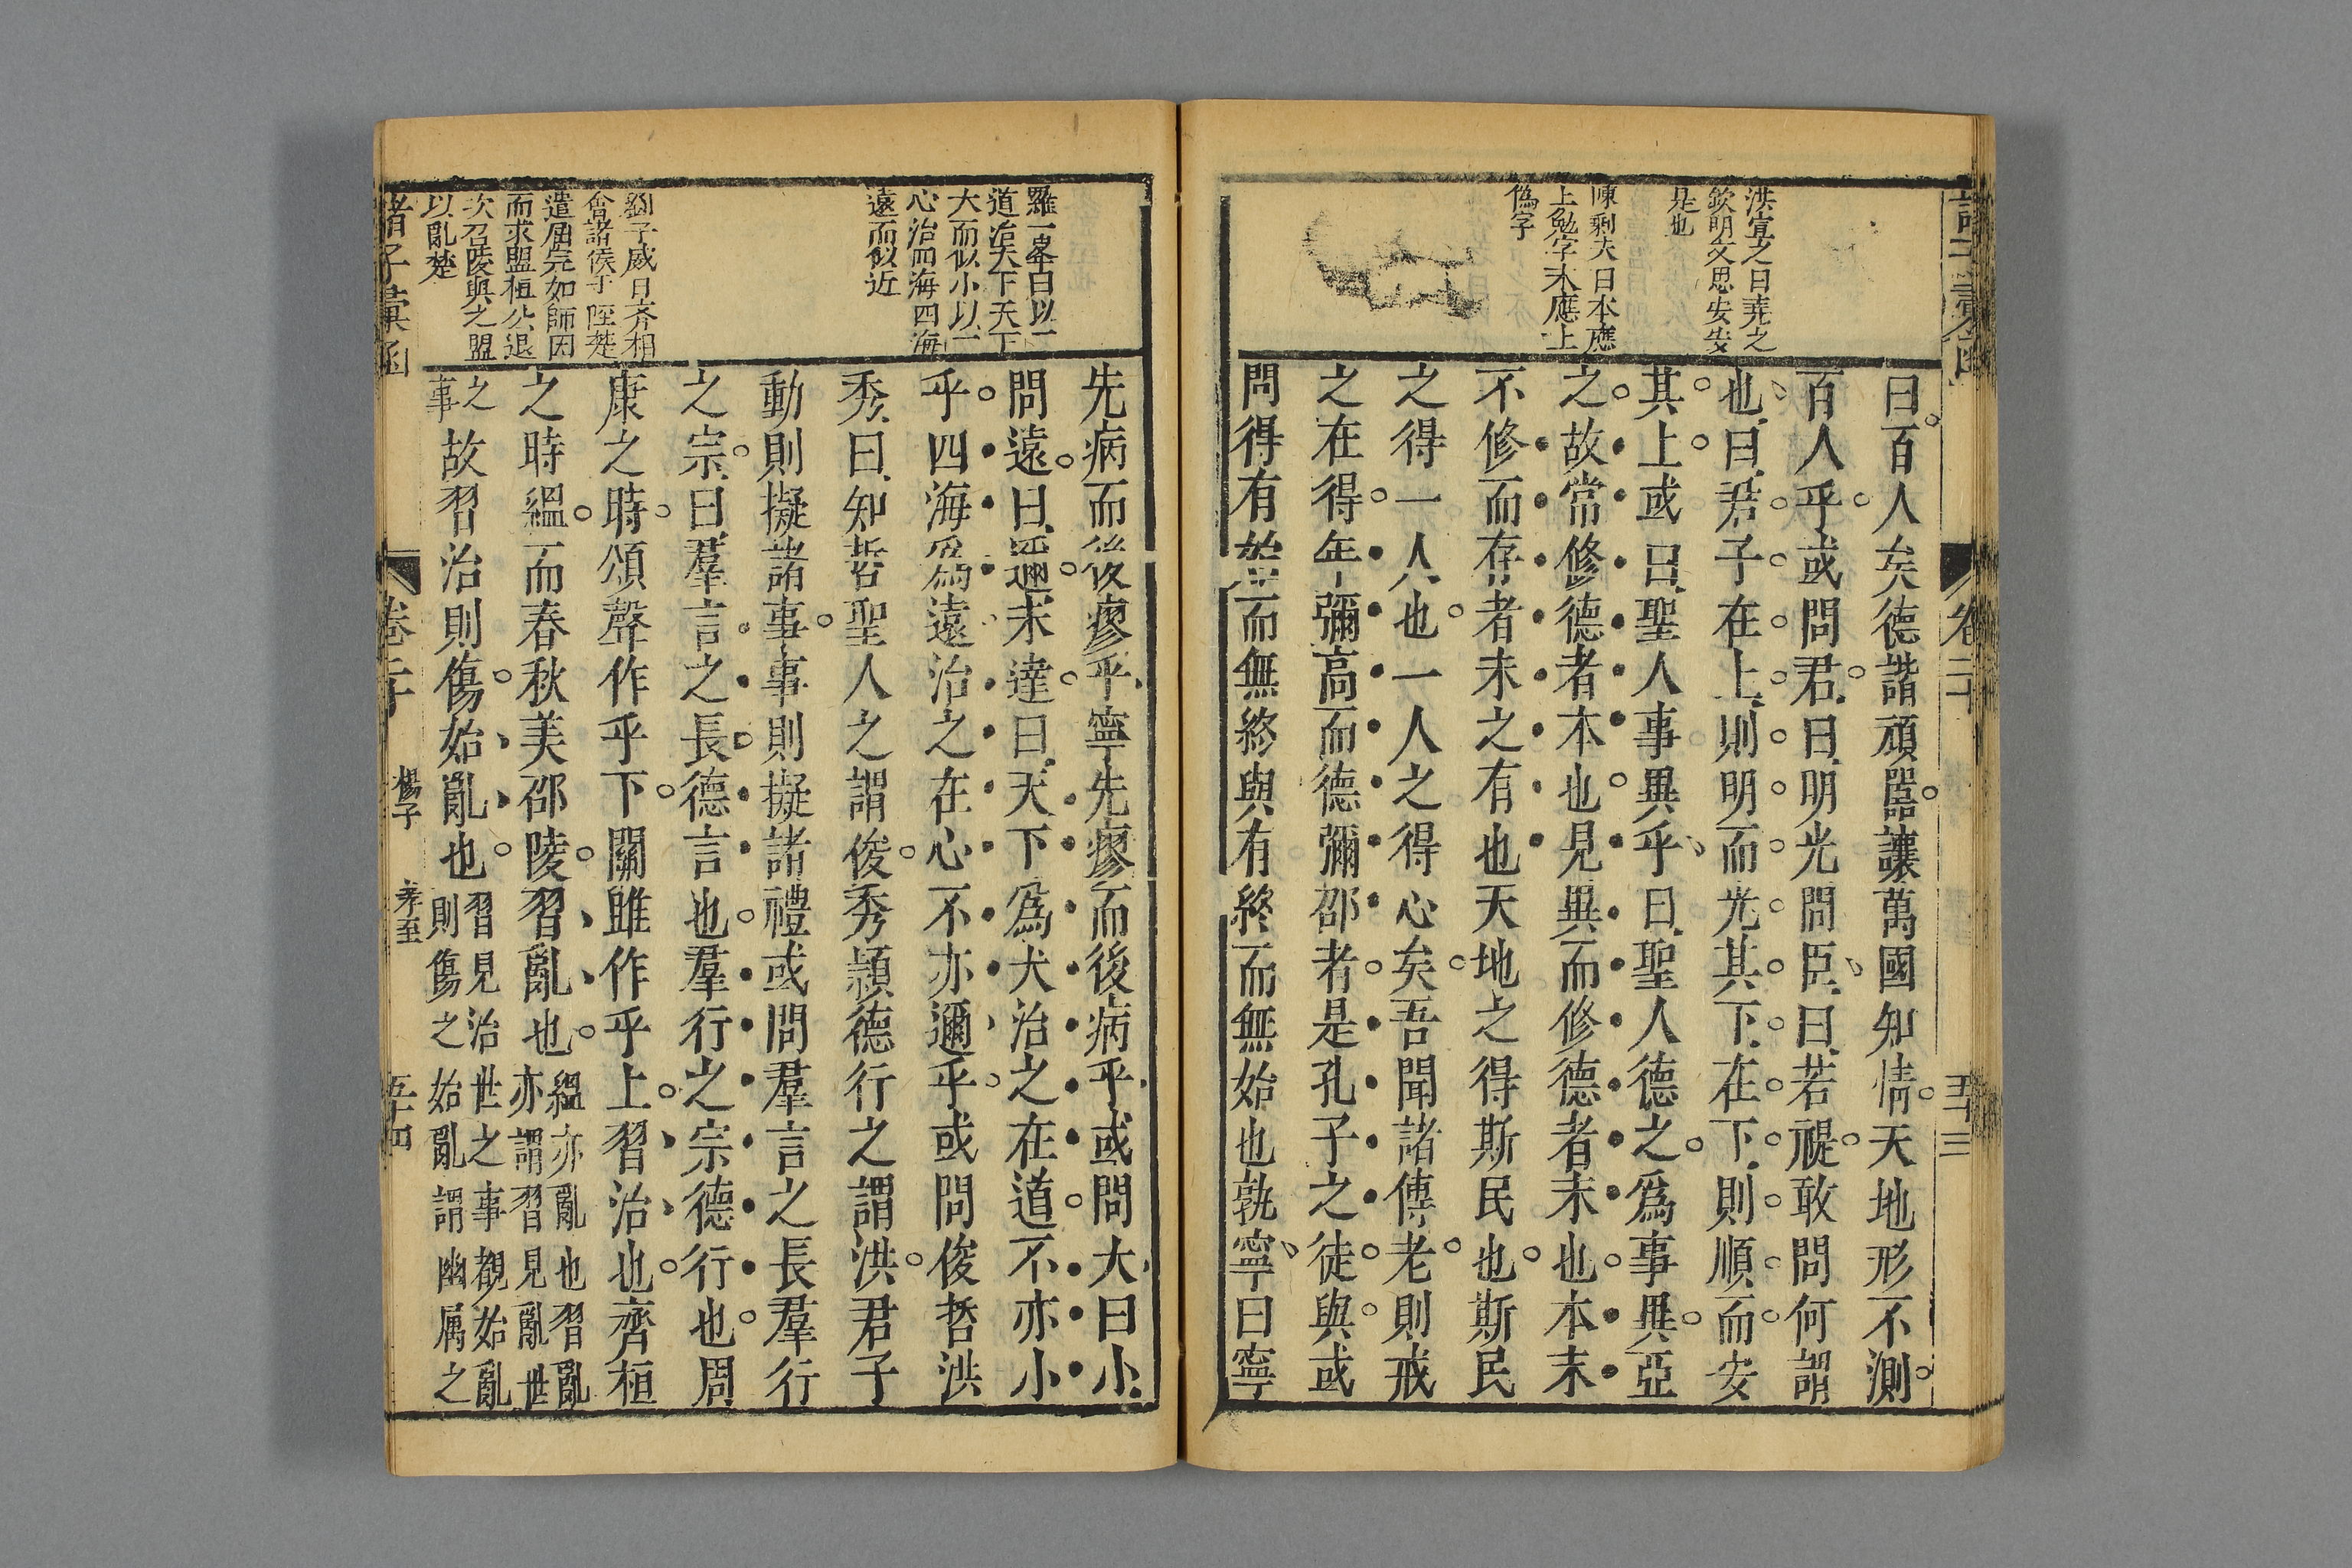 洪宣之曰堯之
欽明文思安安
是也
陳剩夫曰本應
上勉字末應上
僞字
曰百人矣德諧頑嚚讓萬國知情天地形不測
百人乎或問君曰明光問臣曰若禔敢問何謂
也曰君子在上則明而光其下在下則順而安
其上或曰聖人事異乎曰聖人德之爲事異亞
之故常修德者本也見異而修德者末也本末
不修而存者未之有也天地之得斯民也斯民
之得一人也一人之得心矣吾聞諸傳老則戒
之在得年彌高而德彌邵者是孔子之徒與或
問得有始而無終與有終而無始也孰寧曰寧
卷二十
五十三
羅一峯曰以一
道治天下天下
大而似小以一
心治四海四海
遠而似近
劉子威曰齊桓
會諸侯于陘楚
遣屈完如師因
而求盟桓公退
次召陵與之盟
以亂楚
先病而後瘳乎寧先瘳而後病乎或問大曰小
問遠曰邇未達曰天下爲大治之在道不亦小
乎四海爲遠治之在心不亦邇乎或問俊哲洪
秀曰知哲聖人之謂俊秀潁德行之謂洪君子
動則擬諸事事則擬諸禮或問羣言之長羣行
之宗曰羣言之長德言也羣行之宗德行也周
康之時頌聲作乎下關雎作乎上習治也齊桓
之時縕而春秋美邵陵習亂也縕亦亂也習亂
亦謂習見亂世
之
事故習治則傷始亂也習見治世之事觀始亂
則傷之始亂謂幽厲之
諸子彙函
卷二十
楊子
孝至
五十四